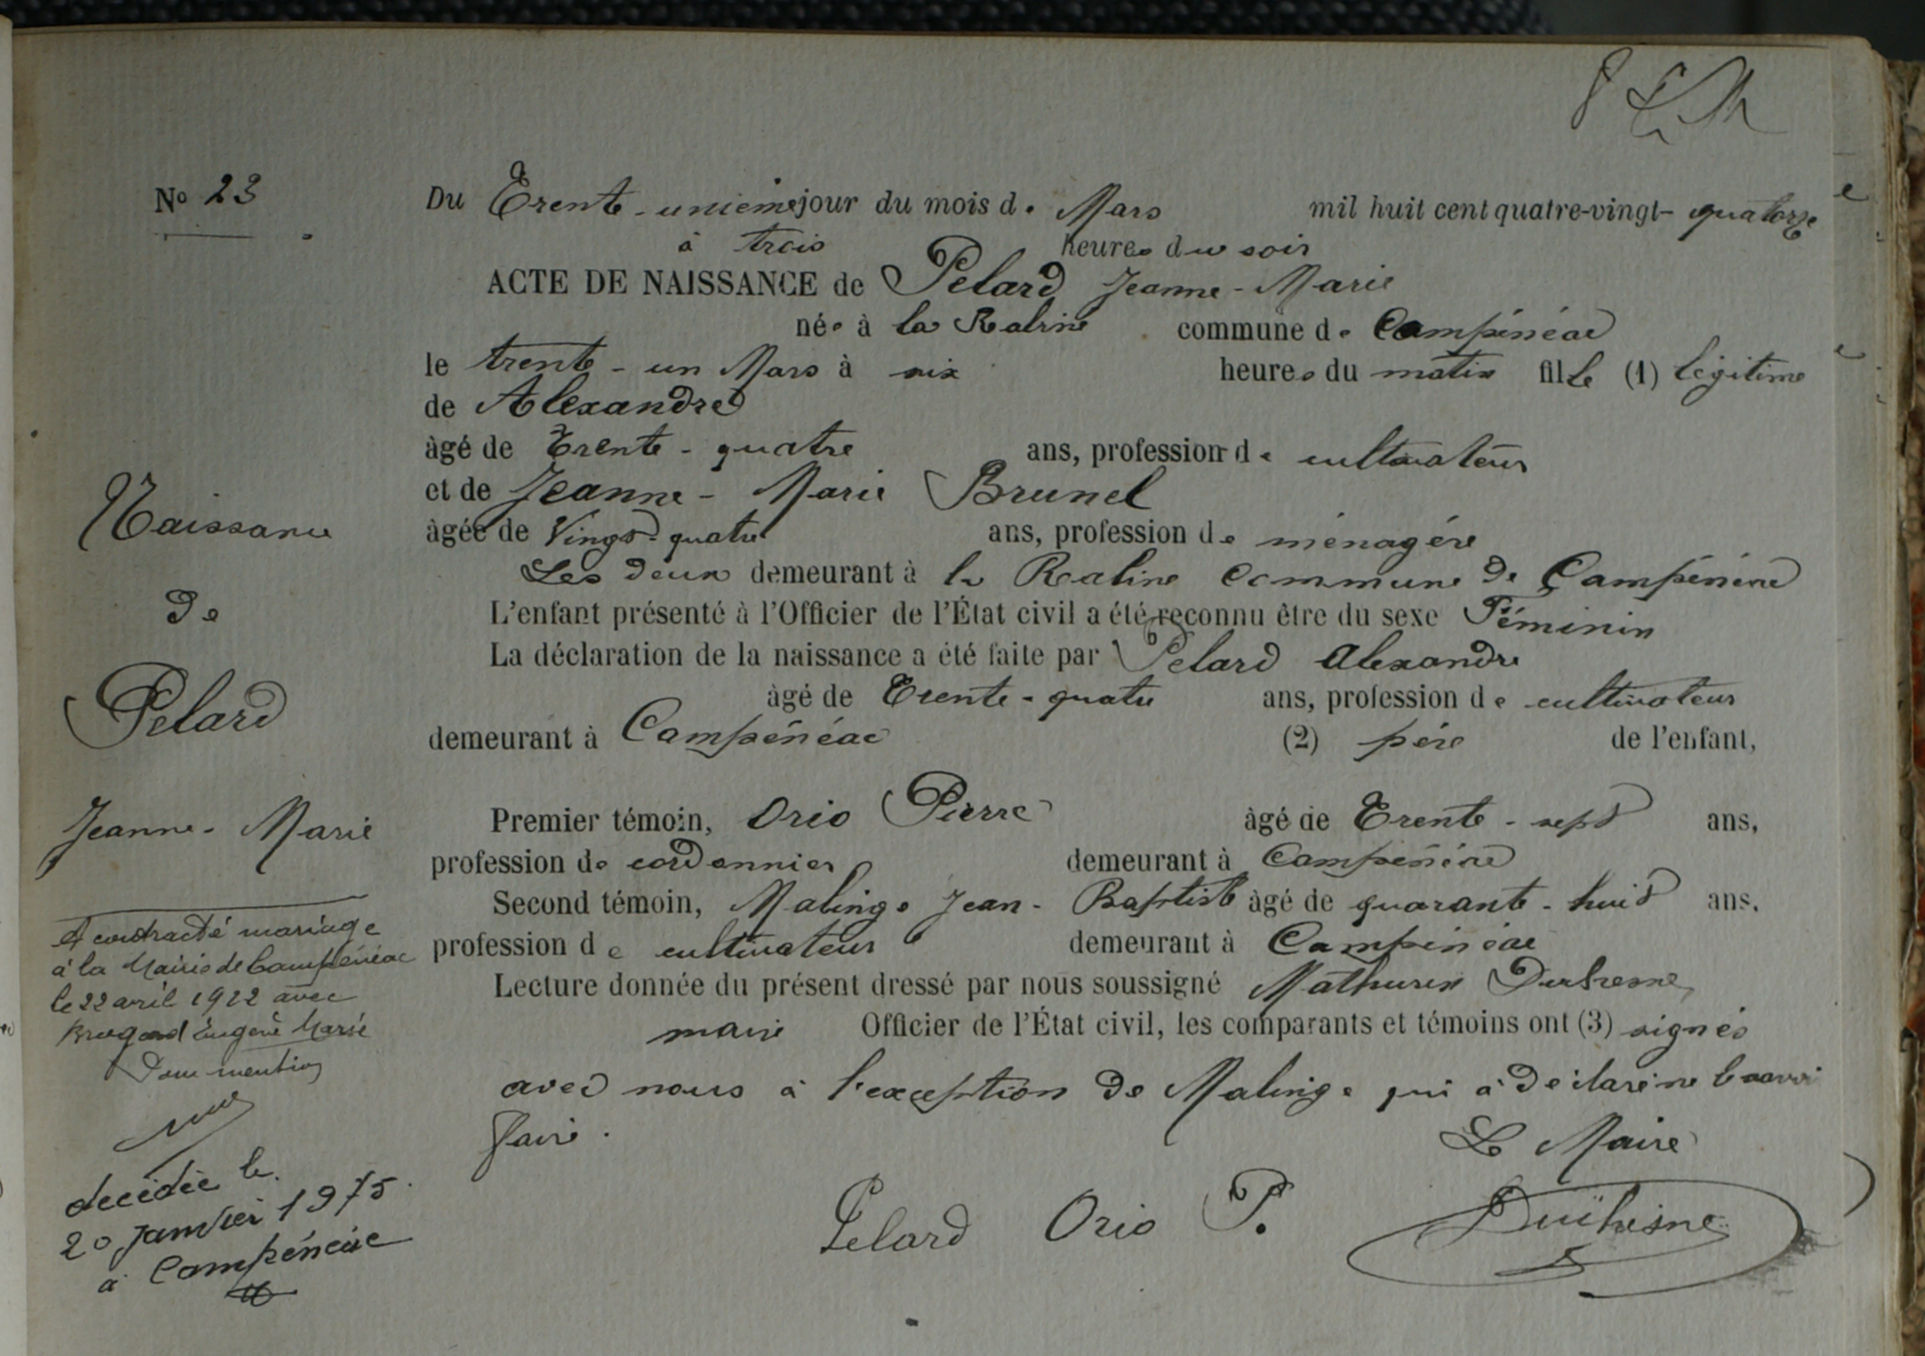 Nº 23
Du Trente-unième jour du mois de Mars mil huit cent quatre-vingt-quatorze
à trois heures du soir
ACTE DE NAISSANCE de Pelard Jeanne-Marie
née à la commune de Campénéac
le trente-un Mars à six heures du matin fille (1) légitime
de Alexandre
âgé de Trente-quatre ans, profession de cultivateur
et de Jeanne-Marie Brunel
âgée de Vingt-quatre ans, profession de ménagère
Les deux demeurant à la Raline commune de Campénéac
L'enfant présenté à l'Officier de l'État civil a été reconnu être du sexe Féminin
La déclaration de la naissance a été faite par Pelard Alexandre
âgé de Trente-quatre ans, profession de cultivateur
demeurant à Campénéac (2) père de l'enfant,
Premier témoin, Orio Pierre âgé de Trente-sept ans,
profession de cordonnier demeurant à Campénéac
Second témoin, Malinge Jean-Baptiste âgé de quarante-huit ans,
profession de cultivateur demeurant à Campénéac
Lecture donnée du présent dressé par nous soussigné Mathurin Duchesne
maire Officier de l'État civil, les comparants et témoins ont (3) signés
avec nous à l'exception de Malinge qui a déclaré ne le savoir
faire.
Le Maire
Pelard Orio P. Duchesne
Naissance
de
Pelard
Jeanne-Marie
A contracté mariage
à la Mairie de Campénéac
le 22 avril 1922 avec
Eugène Marie
Dont mention
décédée le
20 janvier 1975
à Campénéac